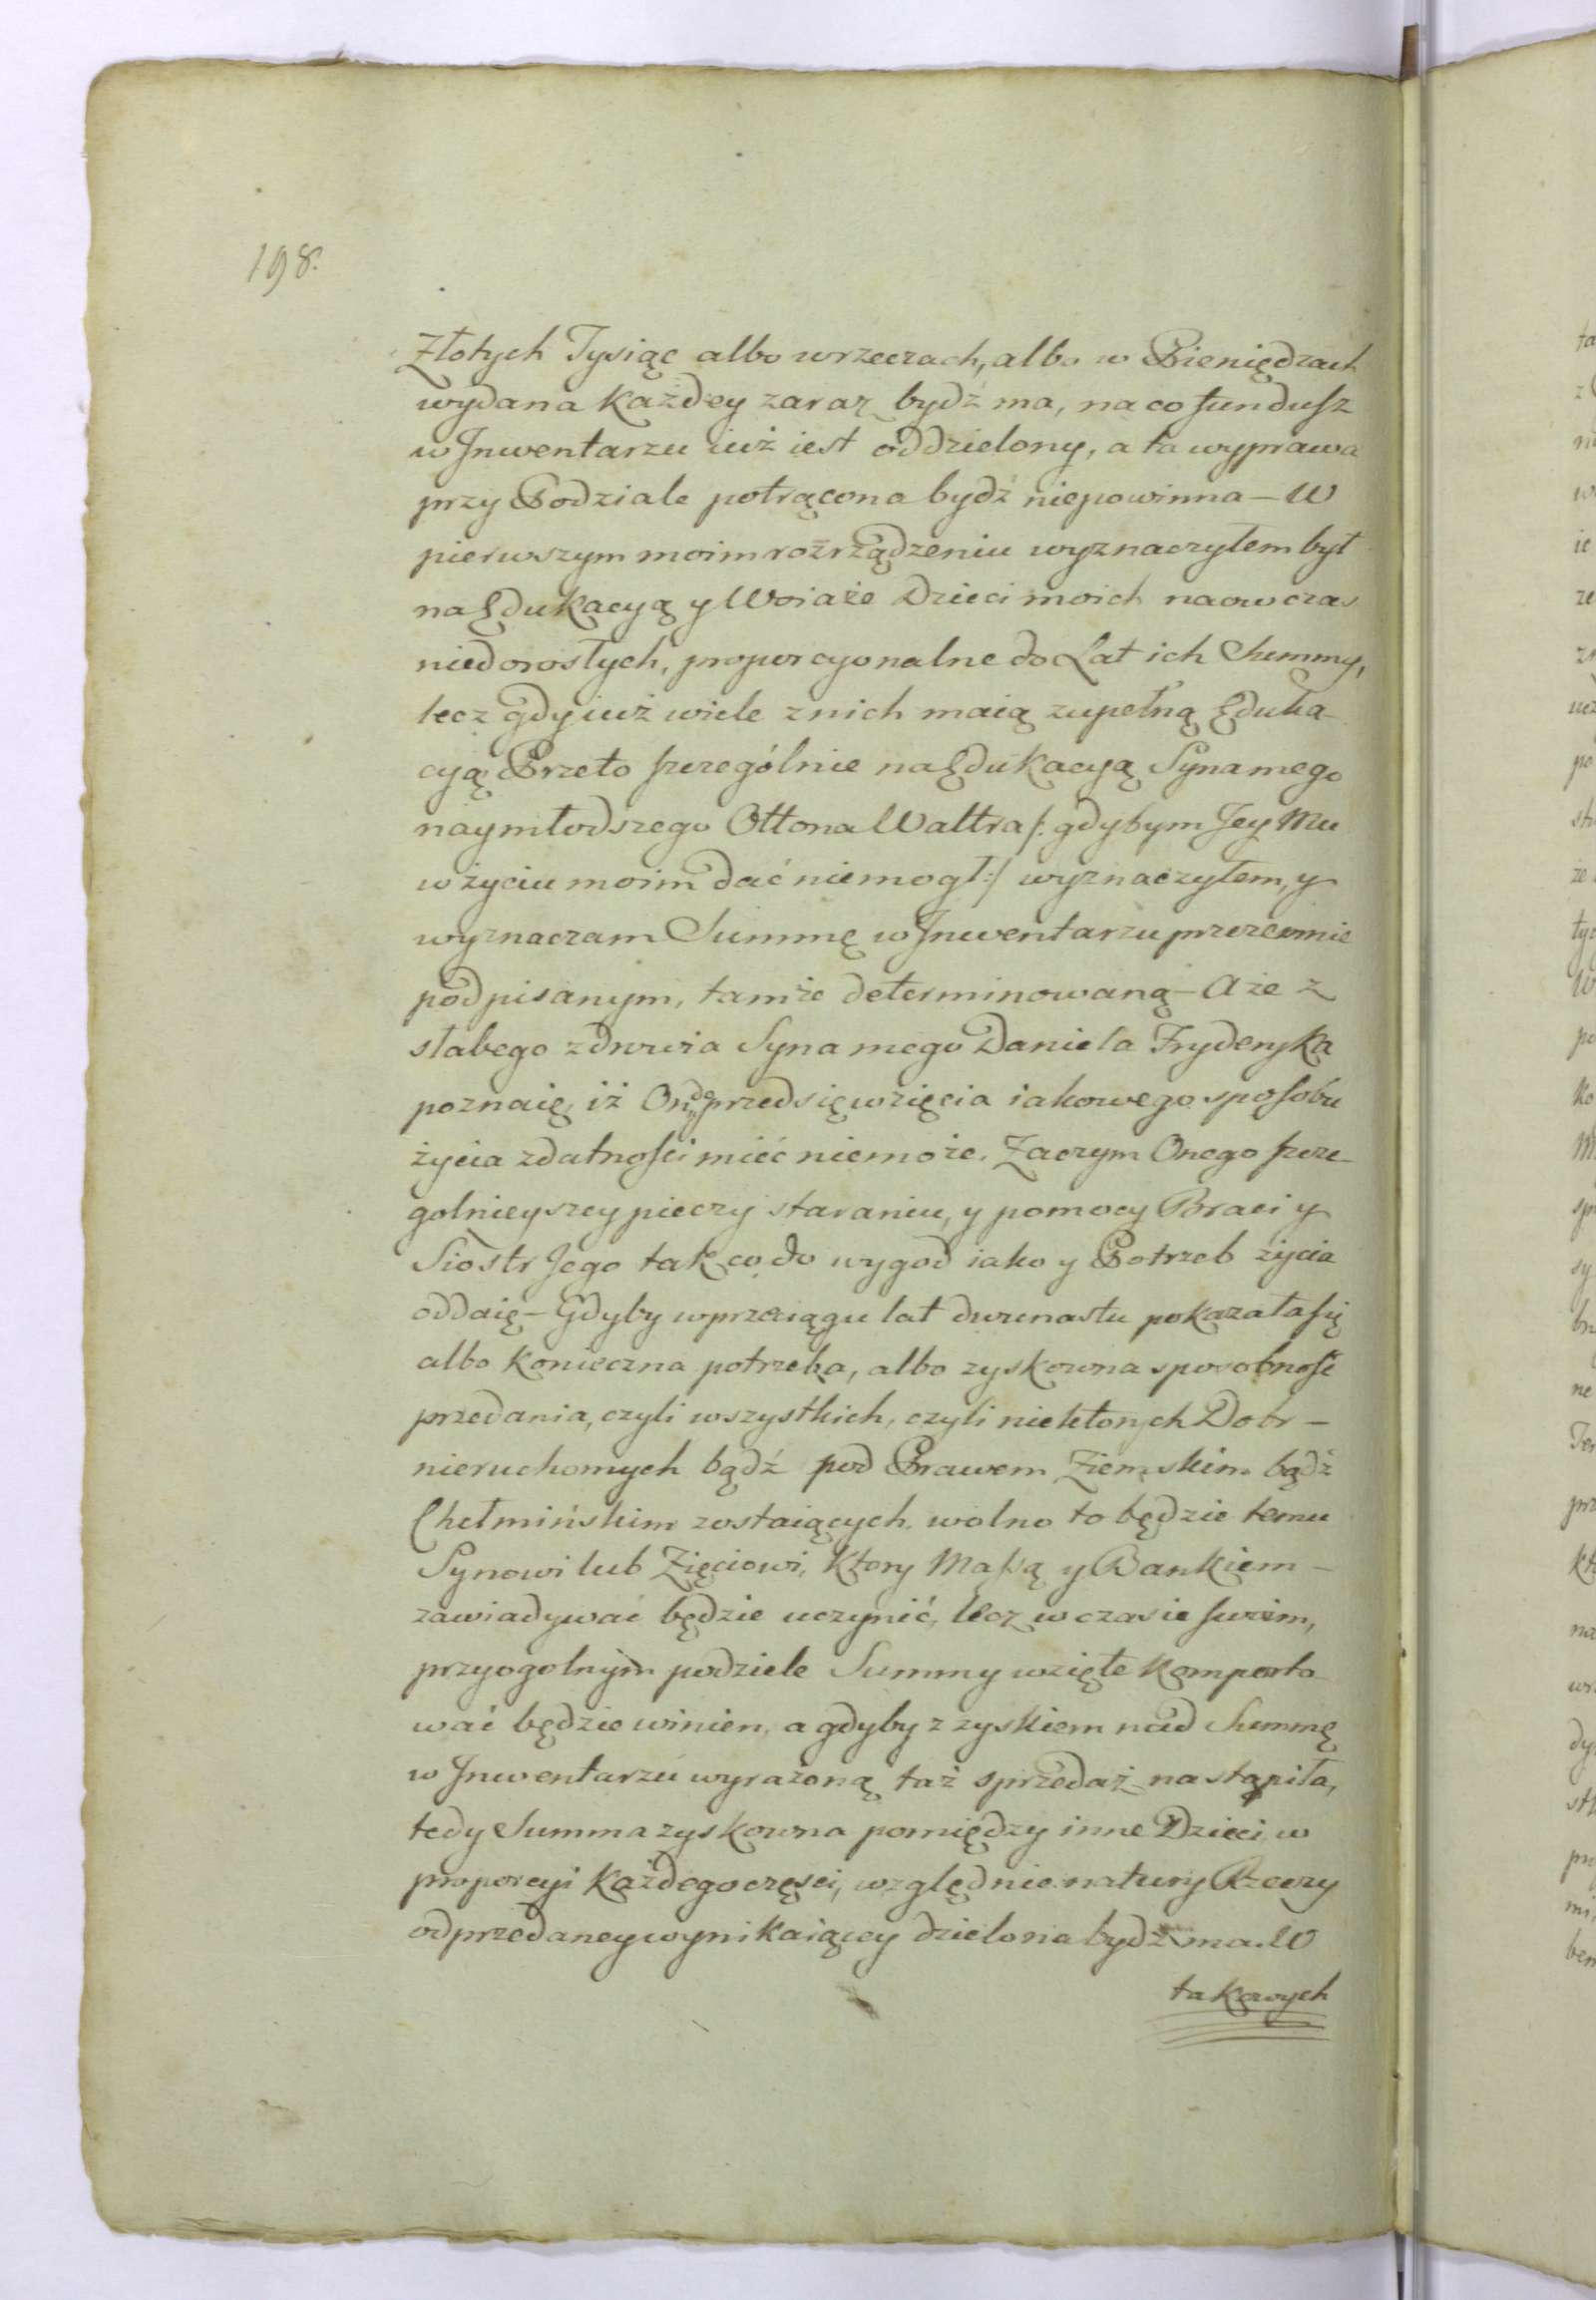 198.
Złotych Tysiąc albo wrzeczach, albo w Pieniędzach
wydana każdey zaraz bydź ma, na co fundusz
w Inwentarzu iuż iest oddzielony, a ta wyprawa
przy Podziale potrącona bydź niepowinna — W
pierwszym moim rozrządzeniu wyznaczyłem był
na Edukacyą y Woiaże Dzieci moich naowczas
niedorosłych, proporcyonalne do Lat ich Summy,
lecz gdy iuż wiele z nich maią zupełną Eduka-
cyą Przeto szczególnie na Edukacyą Syna mego
naymłodszego Ottona Waltra /: gdybym Jey Mu
w życiu moim dać niemogł :/ wyznaczyłem, y
wyznaczam Summę w Inwentarzu przezemnie
podpisanym, tamże determinowaną — A że z
słabego zdrowia Syna mego Daniela Fryderyka
poznaię, iż On do przedsięwzięcia iakowego sposobu
życia zdatności mieć niemoże. Zaczym Onego szcze-
golnieyszey pieczy staraniu, y pomocy Braci y
Siostr Jego tak co do wygod iako y Potrzeb życia
oddaię — Gdyby wprzeciągu lat dwunastu pokazałasię
albo konieczna potrzeba, albo zyskowna sposobność
przedania, czyli wszystkich, czyli niektorych Dobr —
nieruchomych bądź pod Prawem Ziemskim bądź
Chełmińskim zostaiących. wolno to będzie temu
Synowi lub Zięciowi, ktory Massą y Bankiem —
zawiadywać będzie uczynić, lecz w czasie swoim,
przyogolnym podziele Summy wzięte komporto-
wać będzie winien, a gdyby z zyskiem nad Summę
w Inwentarzu wyrażoną taż sprzedaż nastąpiła,
tedy Summa zyskowna pomiędzy inne Dzieci w
proporcyi każdego części, względnie natury Rzeczy
odprzedaney wynikaiącey dzielona bydź ma. W
takowych